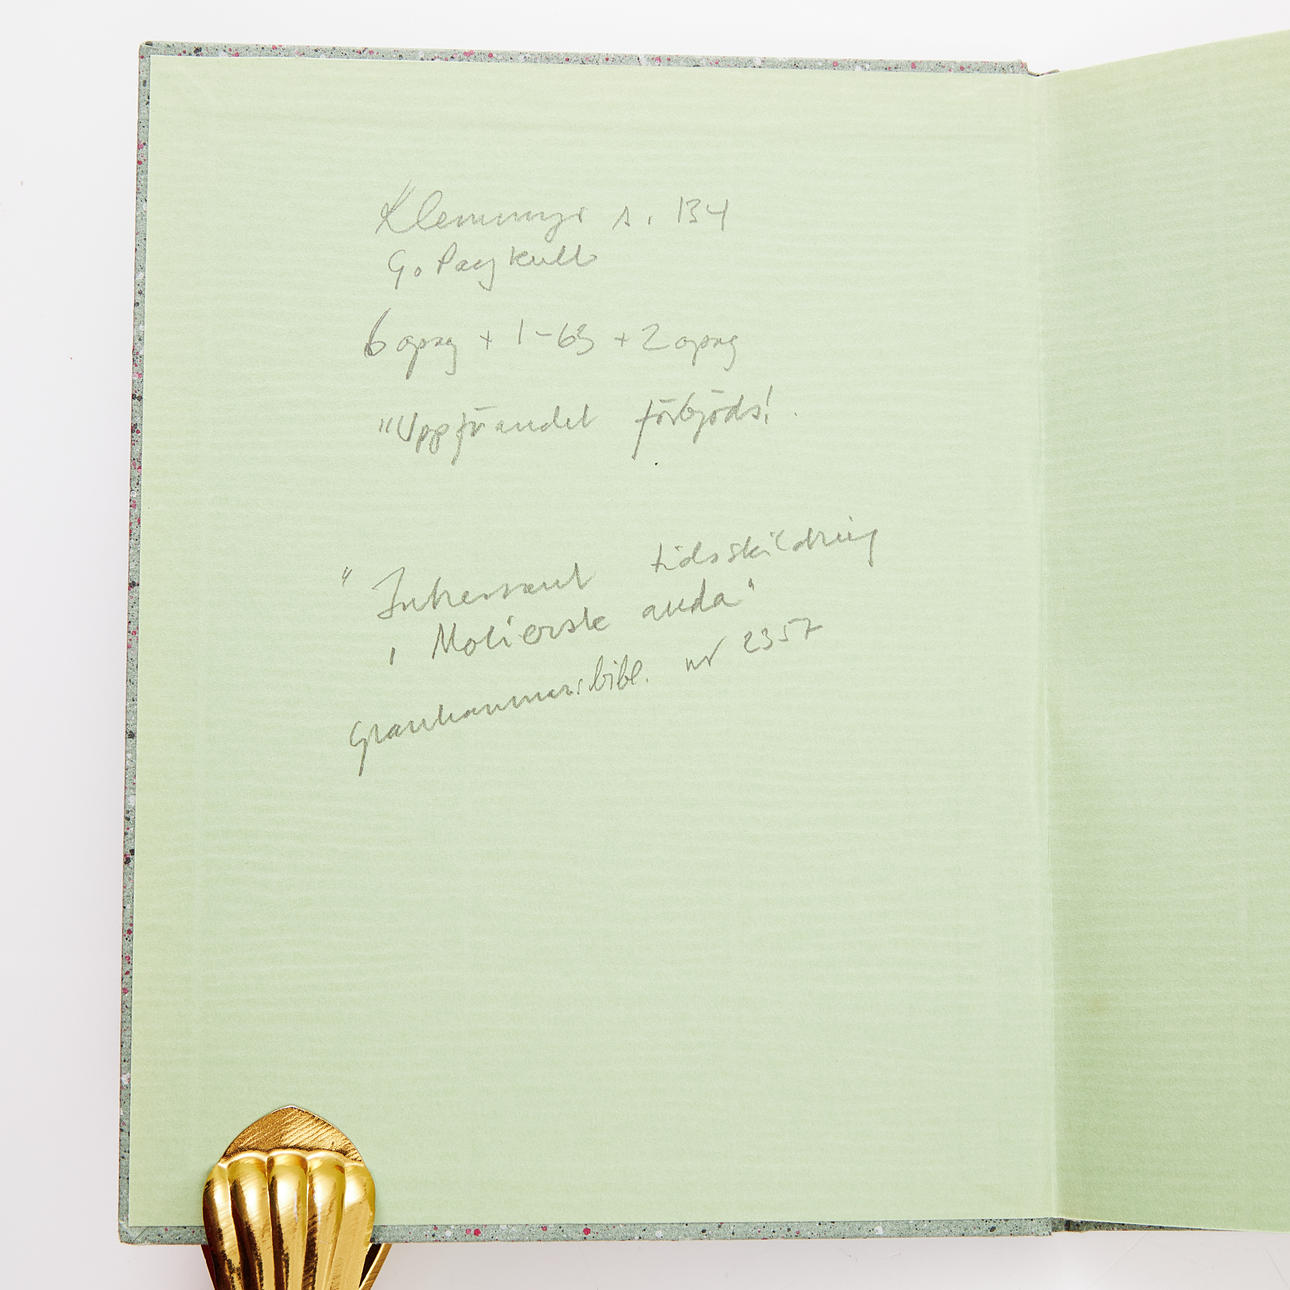 Klemmings s. 134
G. Paykull
6 opag + 1-63 + 2 opag
"Uppförandet förbjöds!
"Intressant tidsskildring
i Molierisk anda"
bibl. nr 2357